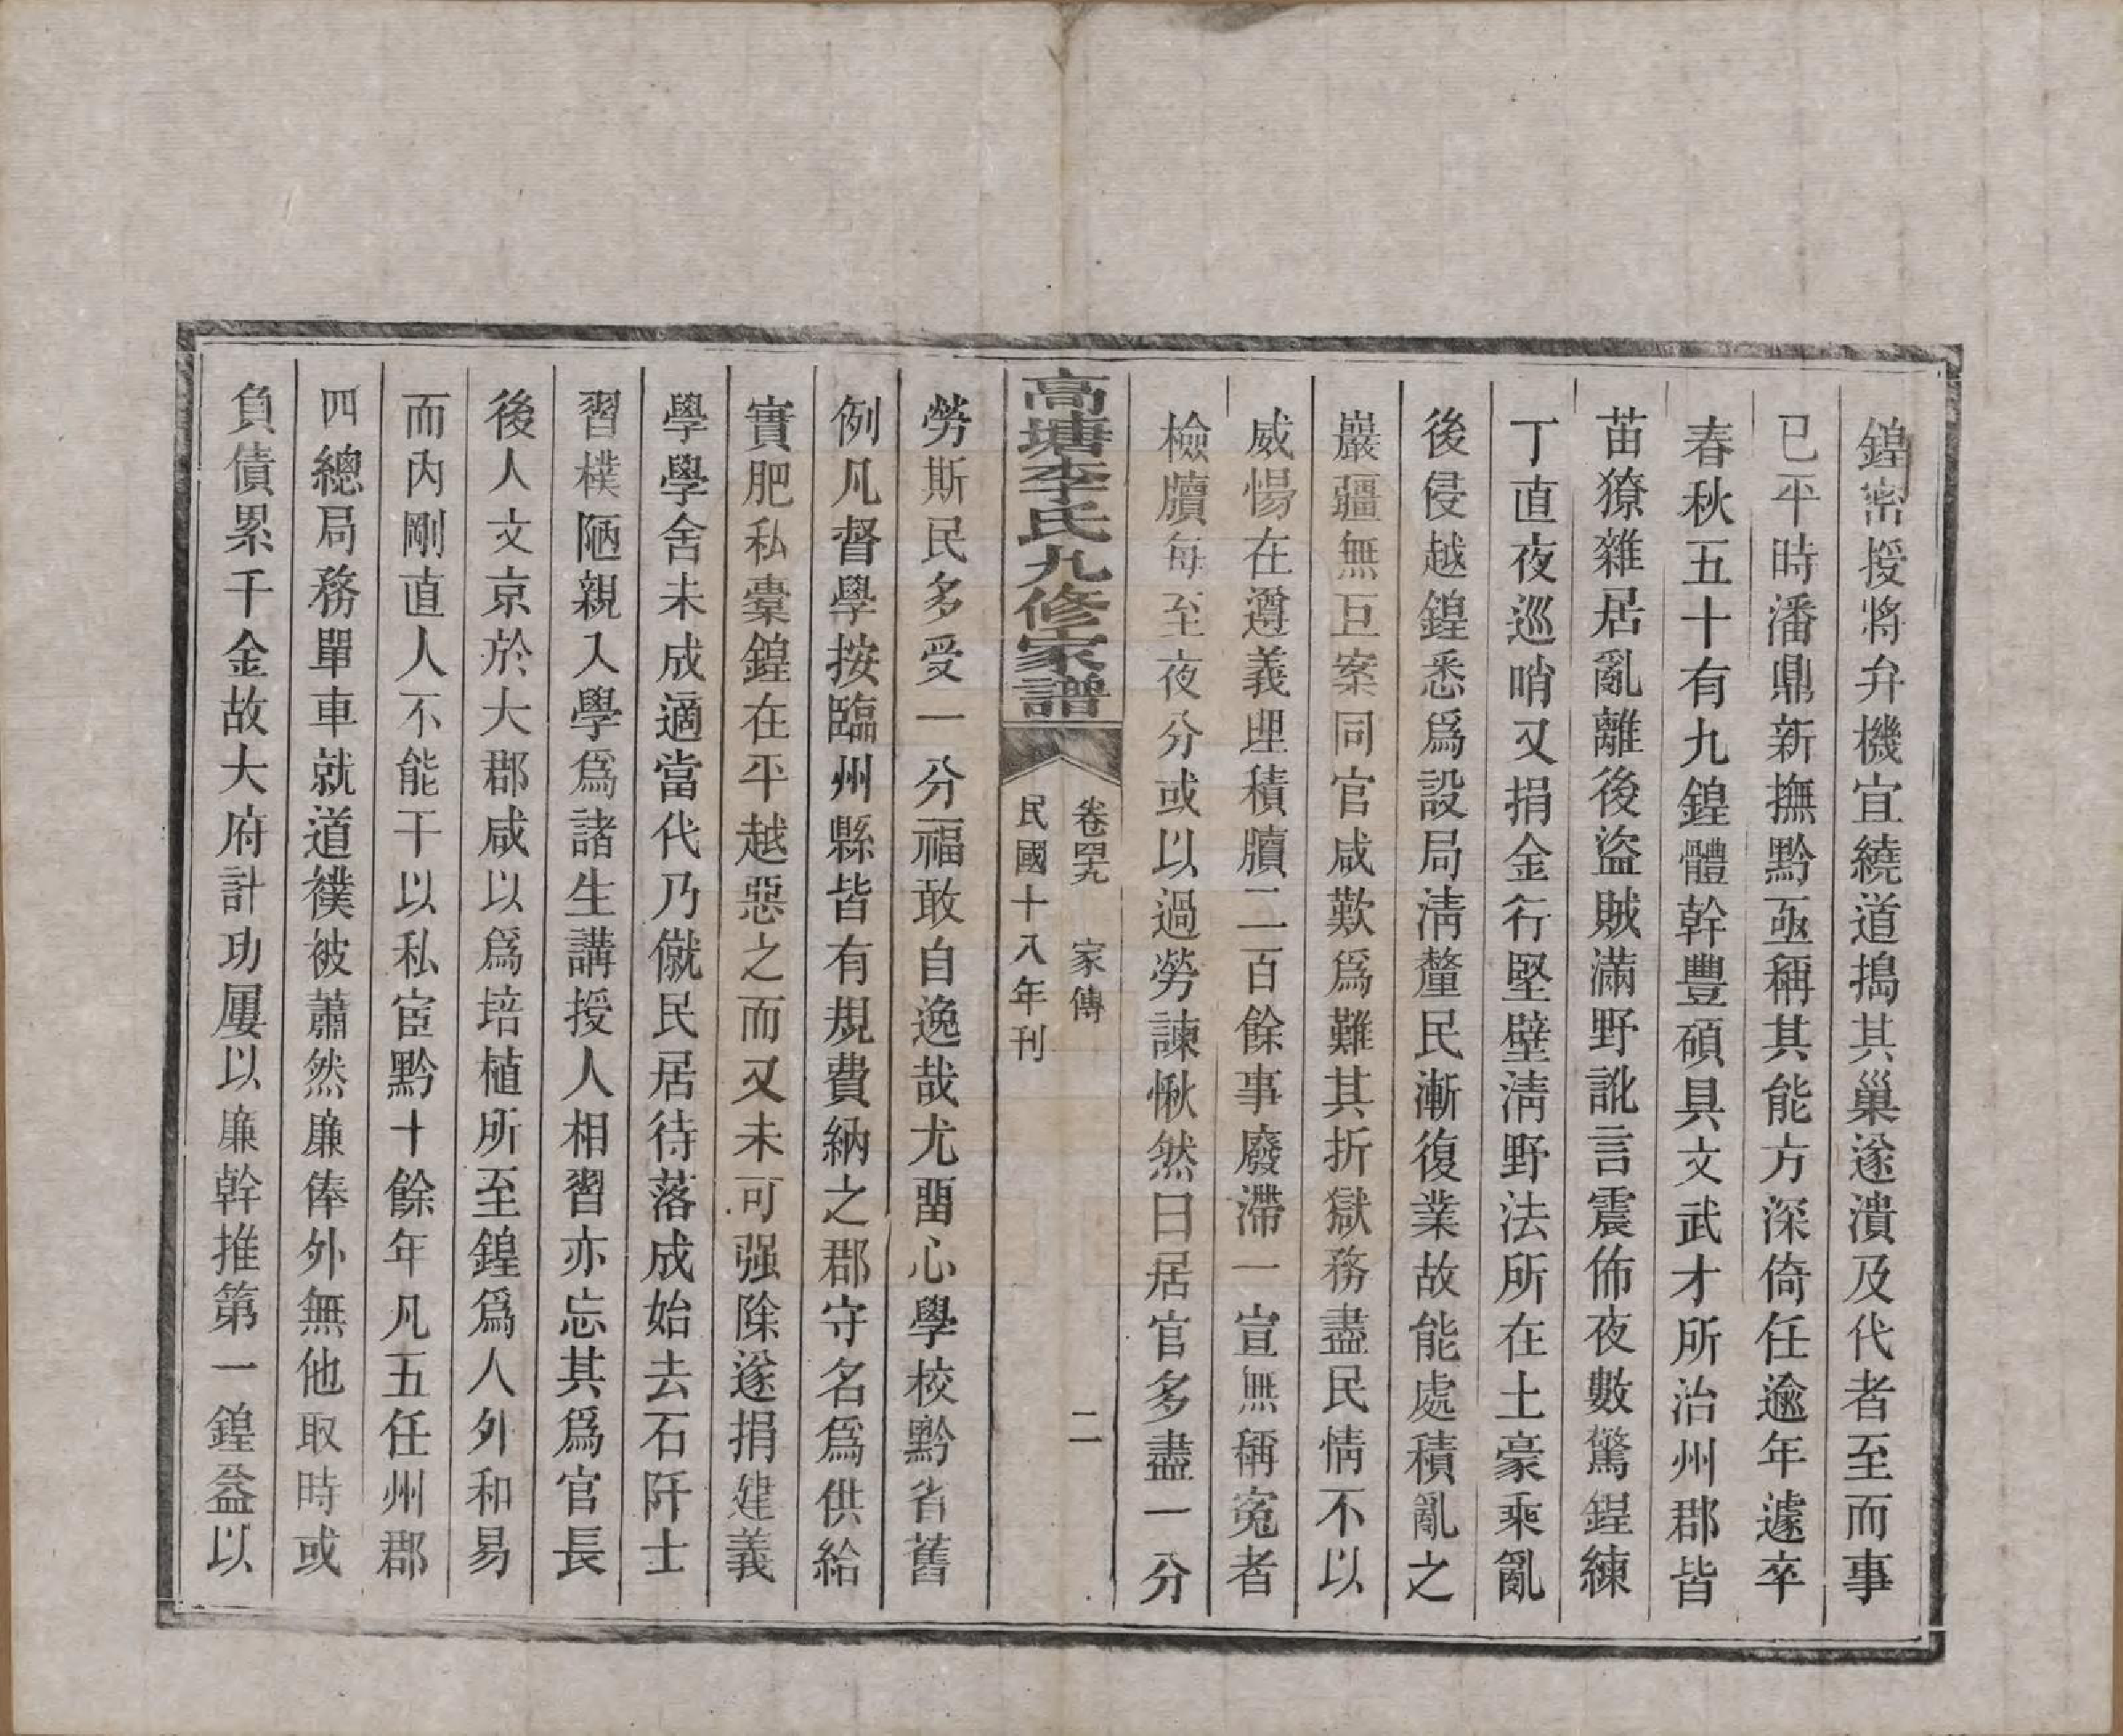 鍠密授將弁機宜繞道搗其巢遂潰及代者至而事
已平時潘鼎新撫黔亟稱其能方深倚任逾年遽卒
春秋五十有九鍠體幹豐碩具文武才所治州郡皆
苗獠雜居亂離後盜賊滿野訛言震佈夜數驚鍠練
丁直夜巡哨又捐金行堅壁清野法所在土豪乘亂
後侵越鍠悉爲設局清釐民漸復業故能處積亂之
巖疆無巨案同官咸歎爲難其折獄務盡民情不以
威惕在遵義理積牘二百餘事廢滯一宣無稱寃者
檢牘每至夜分或以過勞諫愀然曰居官多盡一分
高塘李氏九修家譜
卷四九 家傳 二
民國十八年刊
勞斯民多受一分福敢自逸哉尤畱心學校黔省舊
例凡督學按臨州縣皆有規費納之郡守名爲供給
實肥私橐鍠在平越惡之而又未可强除遂捐建義
學學舍未成適當代乃僦民居待落成始去石阡士
習樸陋親入學爲諸生講授人相習亦忘其爲官長
後人文京於大郡咸以爲培植所至鍠爲人外和易
而內剛直人不能干以私宦黔十餘年凡五任州郡
四總局務單車就道襆被蕭然廉俸外無他取時或
負債累千金故大府計功屢以廉幹推第一鍠益以